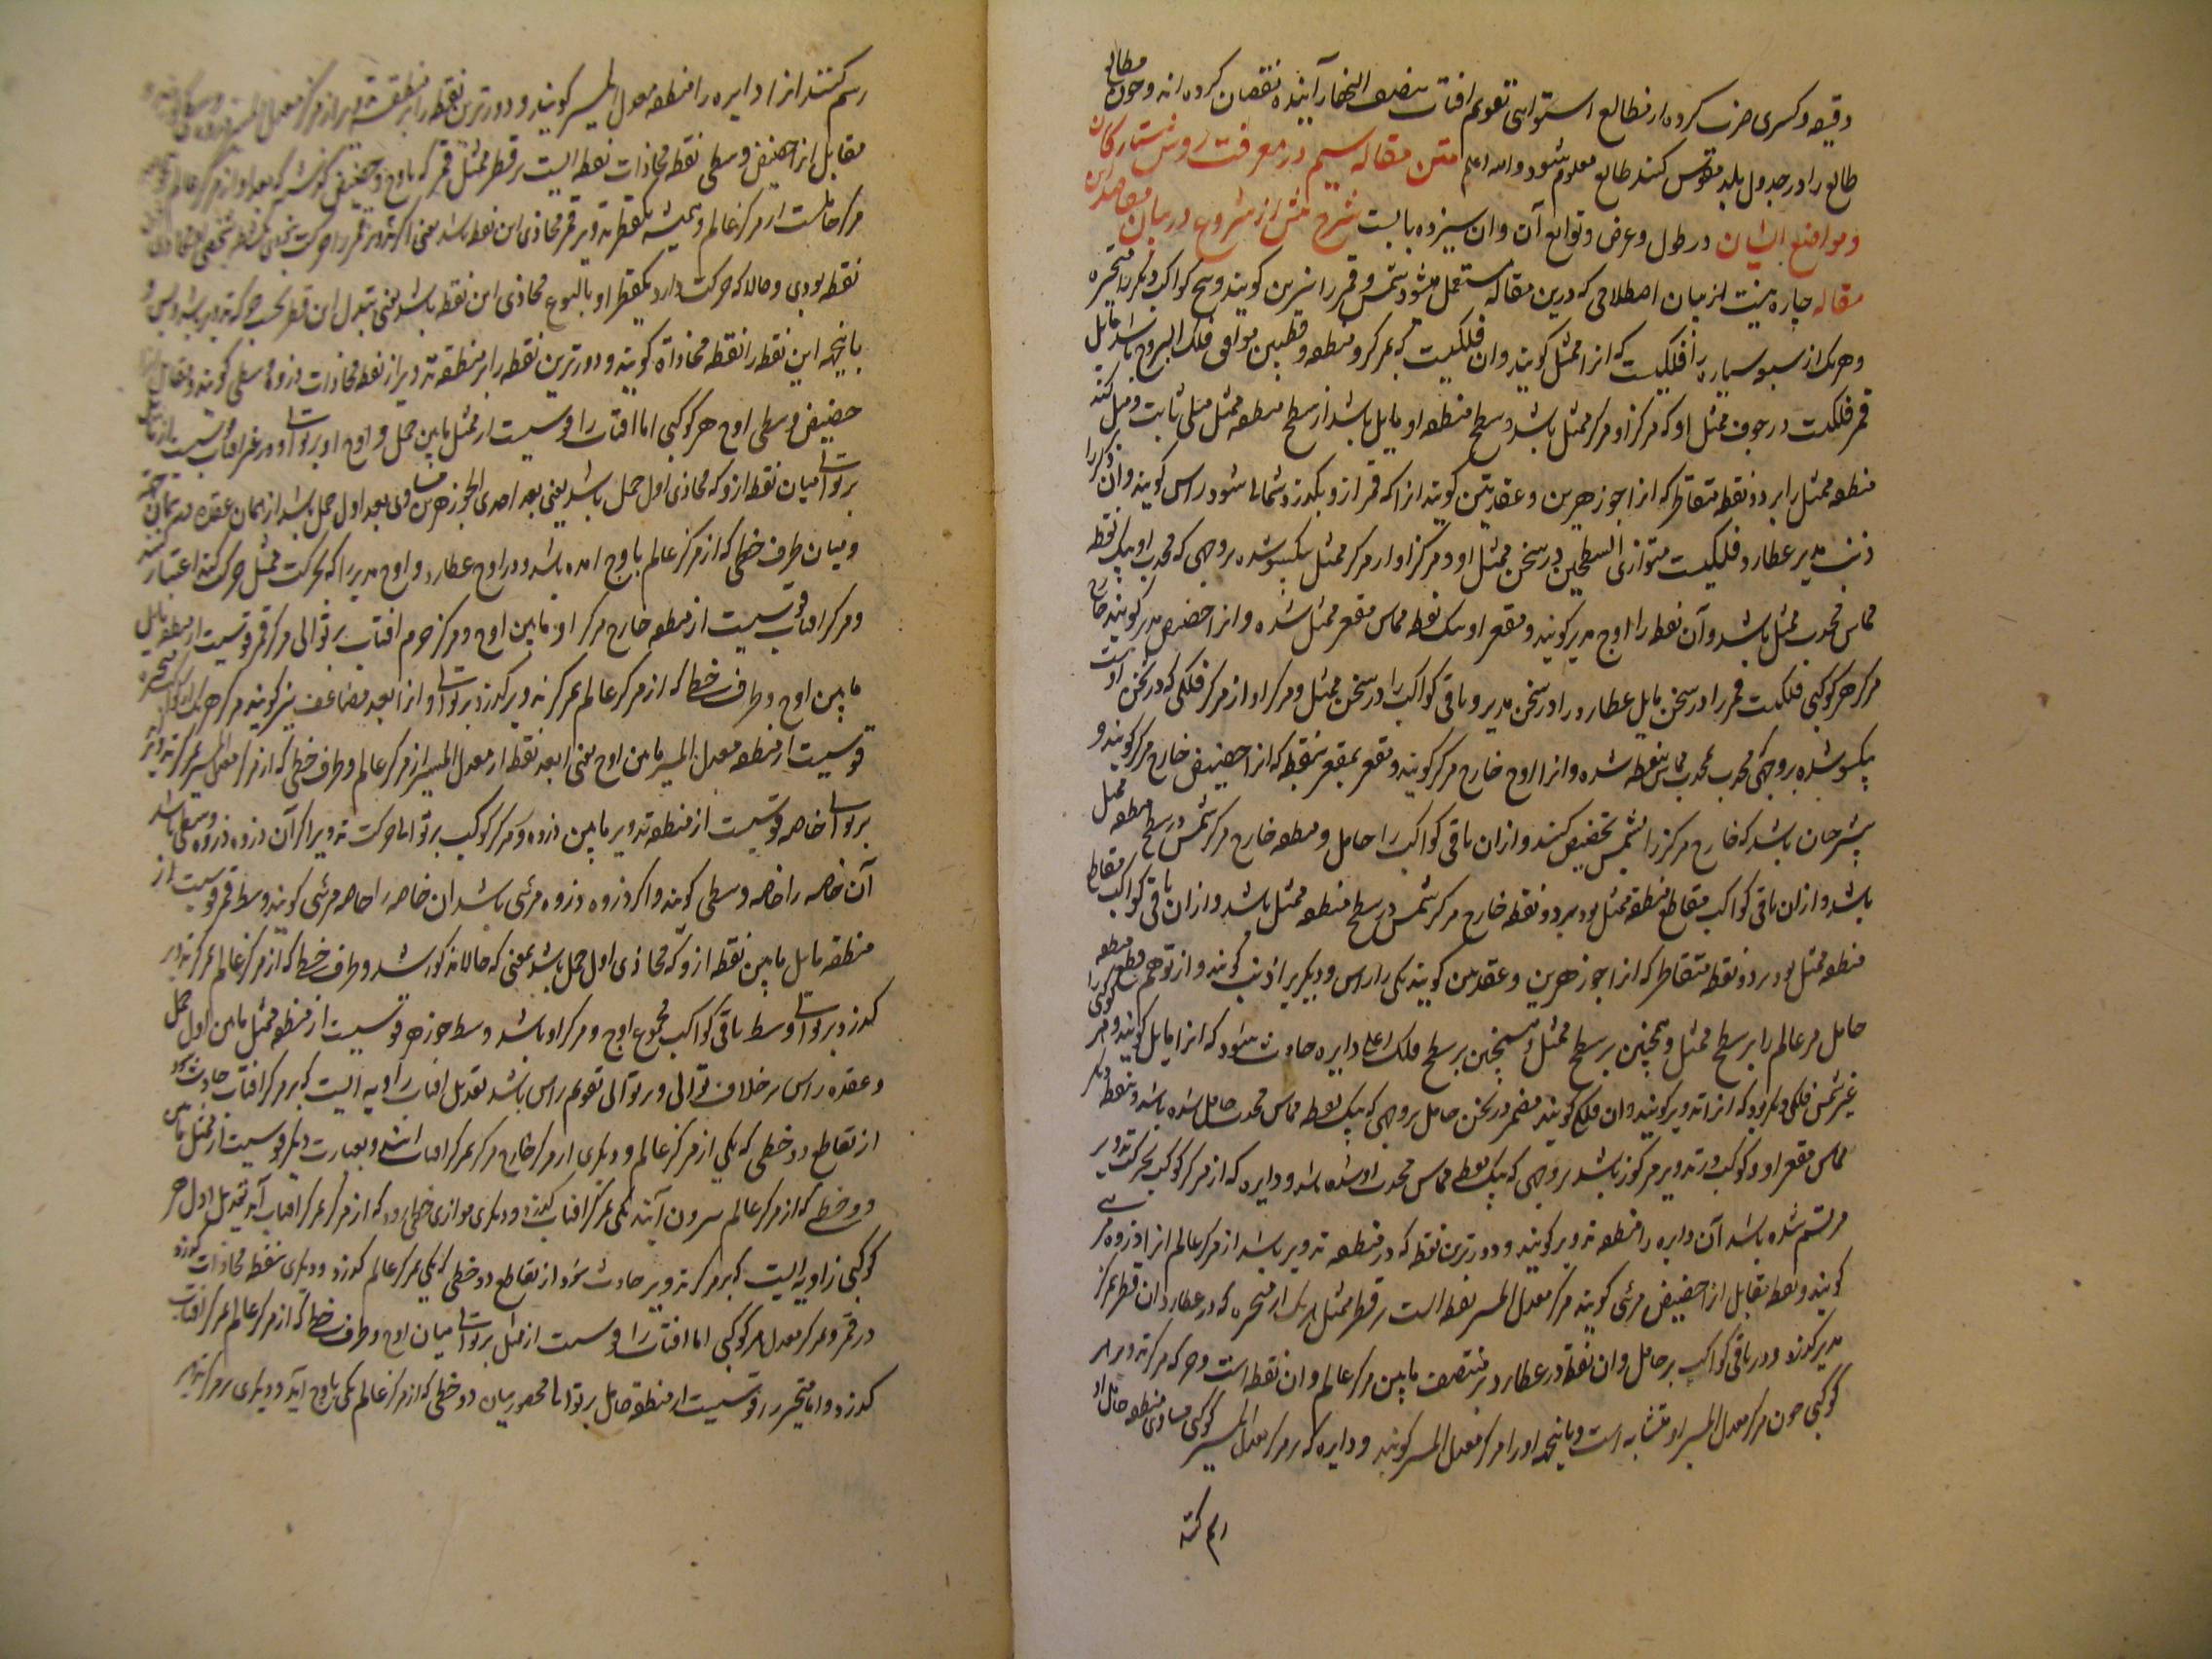 دقیقه وکسری ضرب کرده از مطالع استوائی تقویم افتاب بنصف النهار آینده نقصان کرده اند وچون مطالع
طالع را در جدول بلد مقوس کنند طالع معلوم شود والله اعلم متن مقاله سیم در معرفت روش ستارکان
ومواضع ایشان در طول وعرض وتوابع آن وان سیزده بابست شرح پیش از شروع در بیان مقاصد این
مقاله چاره نیست از بیان اصطلاحی که درین مقاله مستعمل میشود شمس وقمر را نیرین کویند وپنج کواکب دیکر را متحیره
وهریک از سبعه سیاره را فلکیست که انرا ممثل کویند وان فلکیست که بمرکز ومنطقه وقطبین موافق فلک البروج باشد مایل
قمر فلکیست در جوف ممثل او که مرکز او مرکز ممثل باشد وسطح منطقه او مایل باشد از سطح منطقه ممثل میلی ثابت ومیل کند
منطقه ممثل را بر دو نقطه متقاطر که انرا جوزهرین وعقدتین کویند انرا که قمر ازو بکذرد شمالی شود راس کویند وان دیکر را
ذنب مدیر عطارد فلکیست متوازی السطحین در سخن ممثل او ومرکز او از مرکز ممثل بیکسو شده بروجهی که محدب او بیک نقطه
مماس محدب ممثل باشد وآن نقطه را اوج مدیر کویند ومقعر او بیک نقطه مماس مقعر ممثل شده وانرا حضیض مدیر کویند خارج
مرکز هر کوکبی فلکیست قمر را در سخن مایل عطارد را در سخن مدیر وباقی کواکب را در سخن ممثل ومرکز او از مرکز فلکی که در سخن اوست
بیکسو شده بروجهی که محدب بمحدب مماس بنقطه شده وانرا اوج خارج مرکز کویند ومقعر بمقعر بنقطه که انرا حضیض خارج مرکز کویند و
بیشتر چنان باشد که خارج مرکز را بشمس تخصیص کنند وازان باقی کواکب را حامل ومنطقه خارج مرکز شمس در سطح منطقه ممثل
باشد وازان باقی کواکب مقاطع منطقه ممثل بود بر دو نقطه خارج مرکز شمس در سطح منطقه ممثل باشد وازان باقی کواکب مقاطع
منطقه ممثل بود بر دو نقطه متقاطر که انرا جوزهرین وعقدتین کویند یکی را راس ودیکری را ذنب کویند واز توهم قطع منطقه
حامل مر عالم را بر سطح ممثل وهمچنین بر سطح فلک اعلی دایره حادث شود که انرا مایل کویند وهر کوکبی را
غیر شمس فلکی دیکر بود که انرا تدویر کویند وان فلکی کویند مضمر در سخن حامل بروجهی که بیک نقطه مماس محدب حامل شده باشد وبنقطه دیکر
مماس مقعر او وکوکب در تدویر مرکوز باشد بروجهی که بیک نقطه مماس محدب او شده باشد ودایره که از مرکز کوکب بحرکت تدویر
مرتسم شده باشد آن دایره را منطقه تدویر کویند ودورترین نقطه که در منطقه تدویر باشد از مرکز عالم انرا ذروه مرئی
کویند ونقطه مقابل انرا حضیض مرئی کویند مرکز معدل المسیر نقطه ایست بر قطر ممثل هر یک از متحیره که در عطارد ان قطر بمرکز
مدیر کذرد ودر باقی کواکب بر حامل وان نقطه در عطارد بر منتصف مابین مرکز عالم وان نقطه است وحرکت مرکز تدویر هر
کوکبی چون مرکز معدل المسیر او متشابه است وباینجهه او را مرکز معدل المسیر کویند ودایره که بر مرکز معدل المسیر کوکبی مساوی منطقه حامل او
رسم کنند
رسم کنند انرا دایره را منطقه معدل المسیر کویند ودورترین نقطه را بر منطقه تدویر از مرکز معدل المسیر ذروه وسطی کویند و
مقابل انرا حضیض وسطی نقطه محاذات نقطه ایست بر قطر ممثل قمر که باوج وحضیض کذشته که بعد او از مرکز عالم
مرکز حاملست از مرکز عالم وهمیشه یکقطر تدویر قمر محاذی این نقطه باشد یعنی اکر تدویر قمر را حرکت نبودی یک قطر
نقطه بودی وحالا که حرکت دارد یکقطر او بالنوع محاذی این نقطه باشد یعنی بتبدل این قطر بحسب حرکت تدویر باشد
باینجهه این نقطه را نقطه محاذاة کویند ودورترین نقطه را بر منطقه تدویر از نقطه محاذات ذروه وسطی کویند ومقابل
حضیض وسطی اوج هر کوکبی اما افتاب را قوسیست از ممثل مابین حمل واوج او بر توالی ودر غیر افتاب قوسیست از مایل
بر توالی میان نقطه ازو که محاذی اول حمل باشد یعنی بعد احدی الجوزهرین مساوی بعد اول حمل باشد از همان عقده
ومیان طرف خطی که از مرکز عالم باوج امده باشد ودر اوج عطارد واوج مدیر را که بحرکت ممثل حرکت کند اعتبار کنند
ومرکز افتاب قوسیست از منطقه خارج مرکز او مابین اوج ومرکز جرم افتاب بر توالی مرکز قمر قوسیست از منطقه مایل
مابین اوج وطرف خطی که از مرکز عالم بمرکز تدویر کذرد بر توالی وانرا بعد مضاعف نیز کویند مرکز هر یک از کواکب متحیره
قوسیست از منطقه معدل المسیر مابین اوج یعنی ابعد نقطه از معدل المسیر از مرکز عالم وطرف خطی که از مرکز معدل المسیر بمرکز تدویر
بر توالی خاصه قوسیست از منطقه تدویر مابین ذروه ومرکز کوکب بر توالی حرکت تدویر اکر آن ذروه ذروه وسطی باشد
آن خاصه را خاصه وسطی کویند واکر ذروه ذروه مرئی باشد ان خاصه را خاصه مرئی کویند وسط قمر قوسیست از
منطقه مایل مابین نقطه ازو که محاذی اول حمل باشد بمعنی که حالا مذکور شد وطرف خطی که از مرکز عالم بمرکز تدویر
کذرد بر توالی وسط باقی کواکب مجموع اوج ومرکز او باشد وسط جوزهر قوسیست از منطقه ممثل مابین اول حمل
وعقده راس بر خلاف توالی وبر توالی تقویم راس باشد تعدیل افتاب زاویه ایست که بر مرکز افتاب حادث شود
از تقاطع دو خطی که یکی از مرکز عالم ودیکری از مرکز خارج مرکز بمرکز افتاب وبعبارت دیکر قوسیست از ممثل مابین
دو خطی که از مرکز عالم بیرون آیند یکی بمرکز افتاب کذرد ودیکری موازی خطی بود که از مرکز بمرکز افتاب آید تعدیل اول هر
کوکبی زاویه ایست که بر مرکز تدویر حادث شود از تقاطع دو خطی که یکی بمرکز عالم کذرد ودیکری بنقطه محاذات کذرد
در قمر وبمرکز معدل هر کوکبی اما افتاب را قوسیست از ممثل بر توالی میان اوج وطرف خطی که از مرکز عالم بمرکز افتاب
کذرد واما متحیره را قوسیست از منطقه حامل بر توالی محصور میان دو خطی که از مرکز عالم یکی باوج آید ودیکری بمرکز تدویر